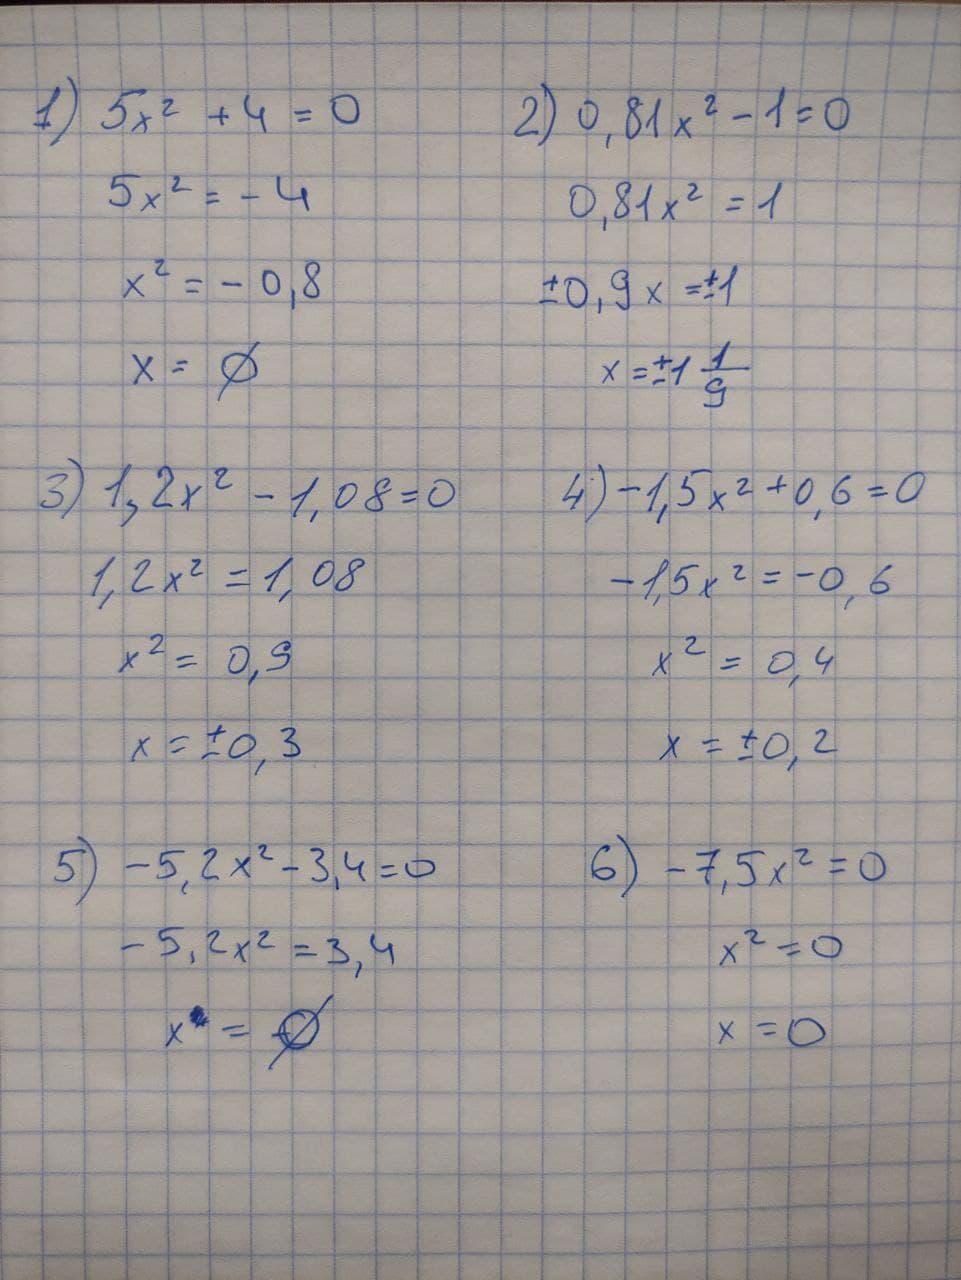 1) 5x² + 4 = 0
5x² = - 4
x² = - 0,8
x = ∅
2) 0,81x² - 1 = 0
0,81x² = 1
±0,9x = ±1
x = ±1 1/9
3) 1,2x² - 1,08 = 0
1,2x² = 1,08
x² = 0,9
x = ±0,3
4) -1,5x² + 0,6 = 0
-1,5x² = -0,6
x² = 0,4
x = ±0,2
5) -5,2x² - 3,4 = 0
-5,2x² = 3,4
x = ∅
6) -7,5x² = 0
x² = 0
x = 0